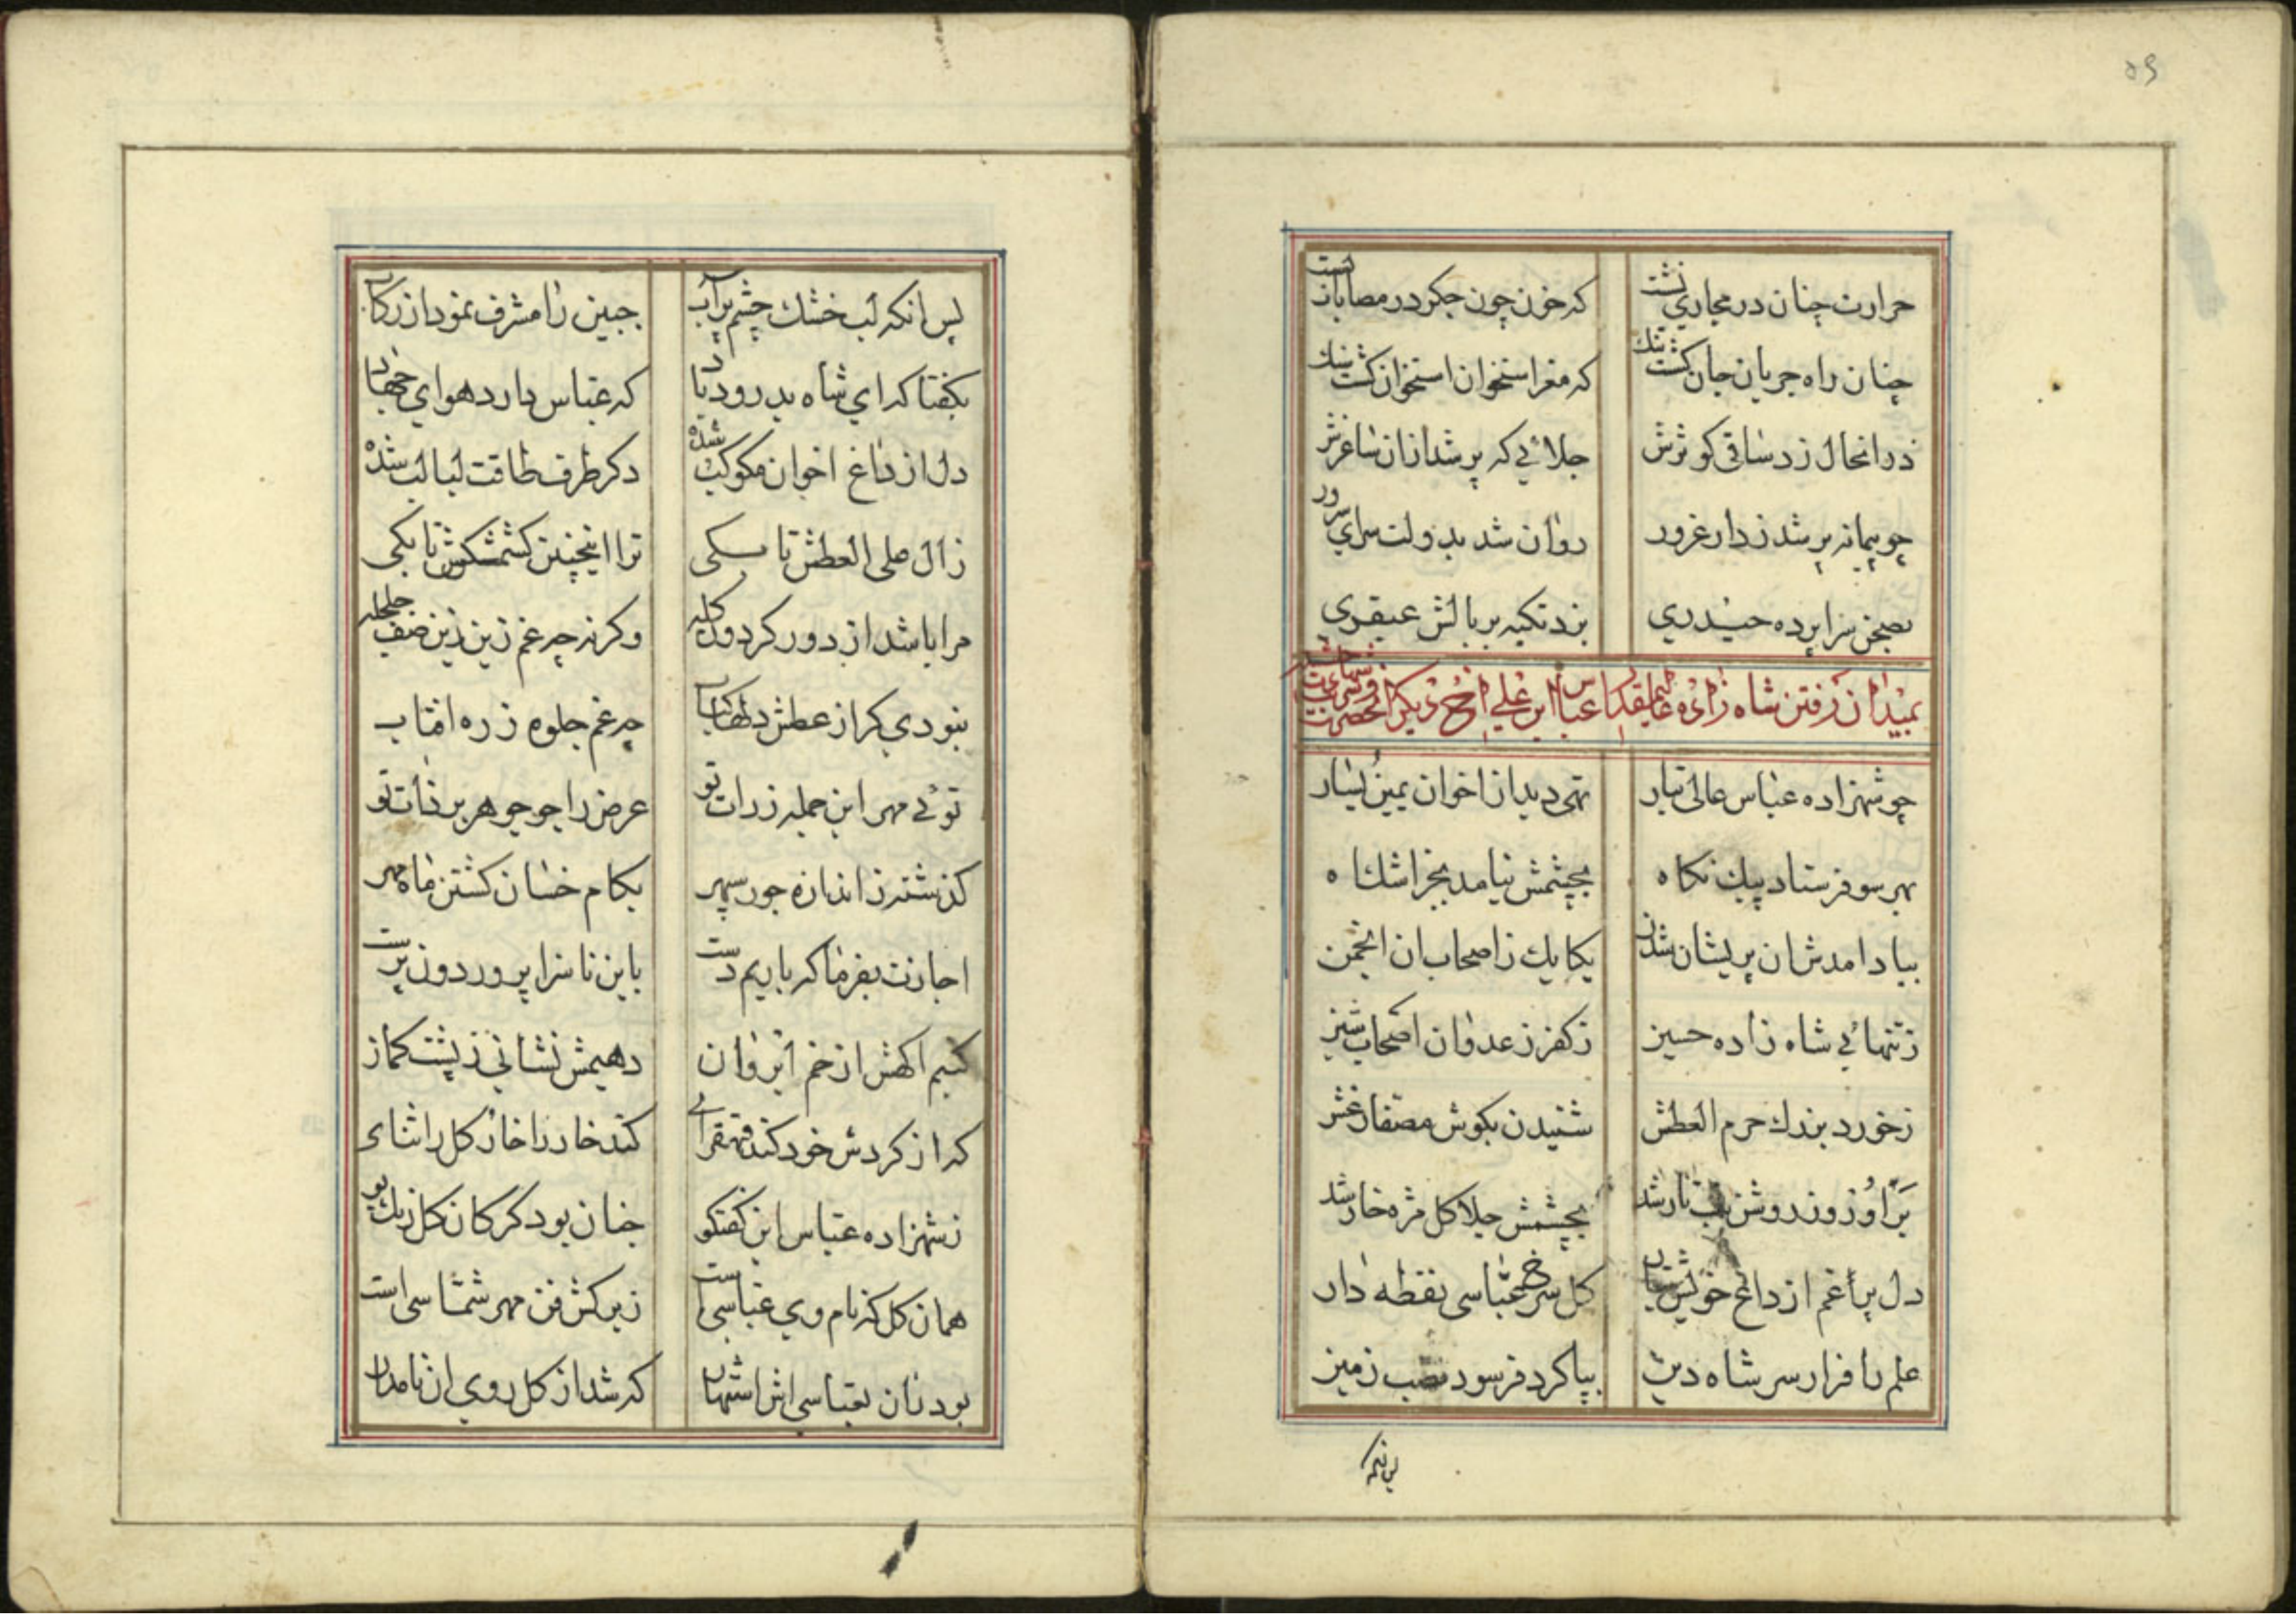 ۵۹
حرارت چنان در مجاری نشست که خون چون جکر در مصابان بست
چنان راه جریان جان کشت تنك که مغز استخوان استخوان کشت سنك
در انحال زد ساقی کوثرش جلائی که پر شد ازان ساغرش
چو پیمانه پر شد ز دار غرور روان شد بدولت سرای سرور
بصحن سراپرده حیدری بزد تکیه بر بالش عبقری
بمیدان رفتن شاه زاده عباس ابن علی اخ دیکر انحضرت
چو شهزاده عباس عالی تبار تهی دید از اخوان یمین یسار
بهر سو فرستاد پیك نکاه بچشمش نیامد بجز اشك اه
بیاد امدش ان پریشان شدن یکایك ز اصحاب ان انجمن
ز تنهائی شاه زاده حسین ز کفر ز عدوان اصحاب شین
ز خورد بزرك حرم العطش شنیدن بکوش
بر او روز روشن شب تار شد بچشمش جلا کل مژه خار شد
دل پر غم از داغ خویش تبار کل سرخ عباسی نقطه دار
علم را فراز سر شاه دین بپا کرد فرسود نصب زمین
پس انکه
پس انکه لب خشك چشم پر آب جبین را مشرف نمود از رکاب
بکفتا که ای شاه بدرود باد که عباس دارد هوای جهاد
دل از داغ اخوان مکوکب شده دکر ظرف طاقت لبالب شده
ز ال علی العطش تا بکی ترا اینچنین کشمکش تا بکی
مرا باشد از دور کردون کله وکرنه چه غم زین
بنودی کر از عطش دلها کباب چه غم جلوه ذره افتاب
توئی مهر این جمله ذرات تو عرض را چو جوهر بر ذات تو
کذشته ز اندازه جور سپهر بکام خسان کشتن ماه مهر
اجازت بفرما که باریم دست باین ناسزا پرور دون پرست
کنیم اکهش از خم ابروان دهیمش نشانی ز پشت کمان
که از کردش خود کند قهقرای کند خار را خار کل را سنای
ز شهزاده عباس این کفتکو چنان بود کز کان کل رنك بو
همان کل که نام وی عباسی است ز پرکش فن مهر شماسی است
بود زان بعباسی اش اشتهار که شد از کل روی ان نامدار